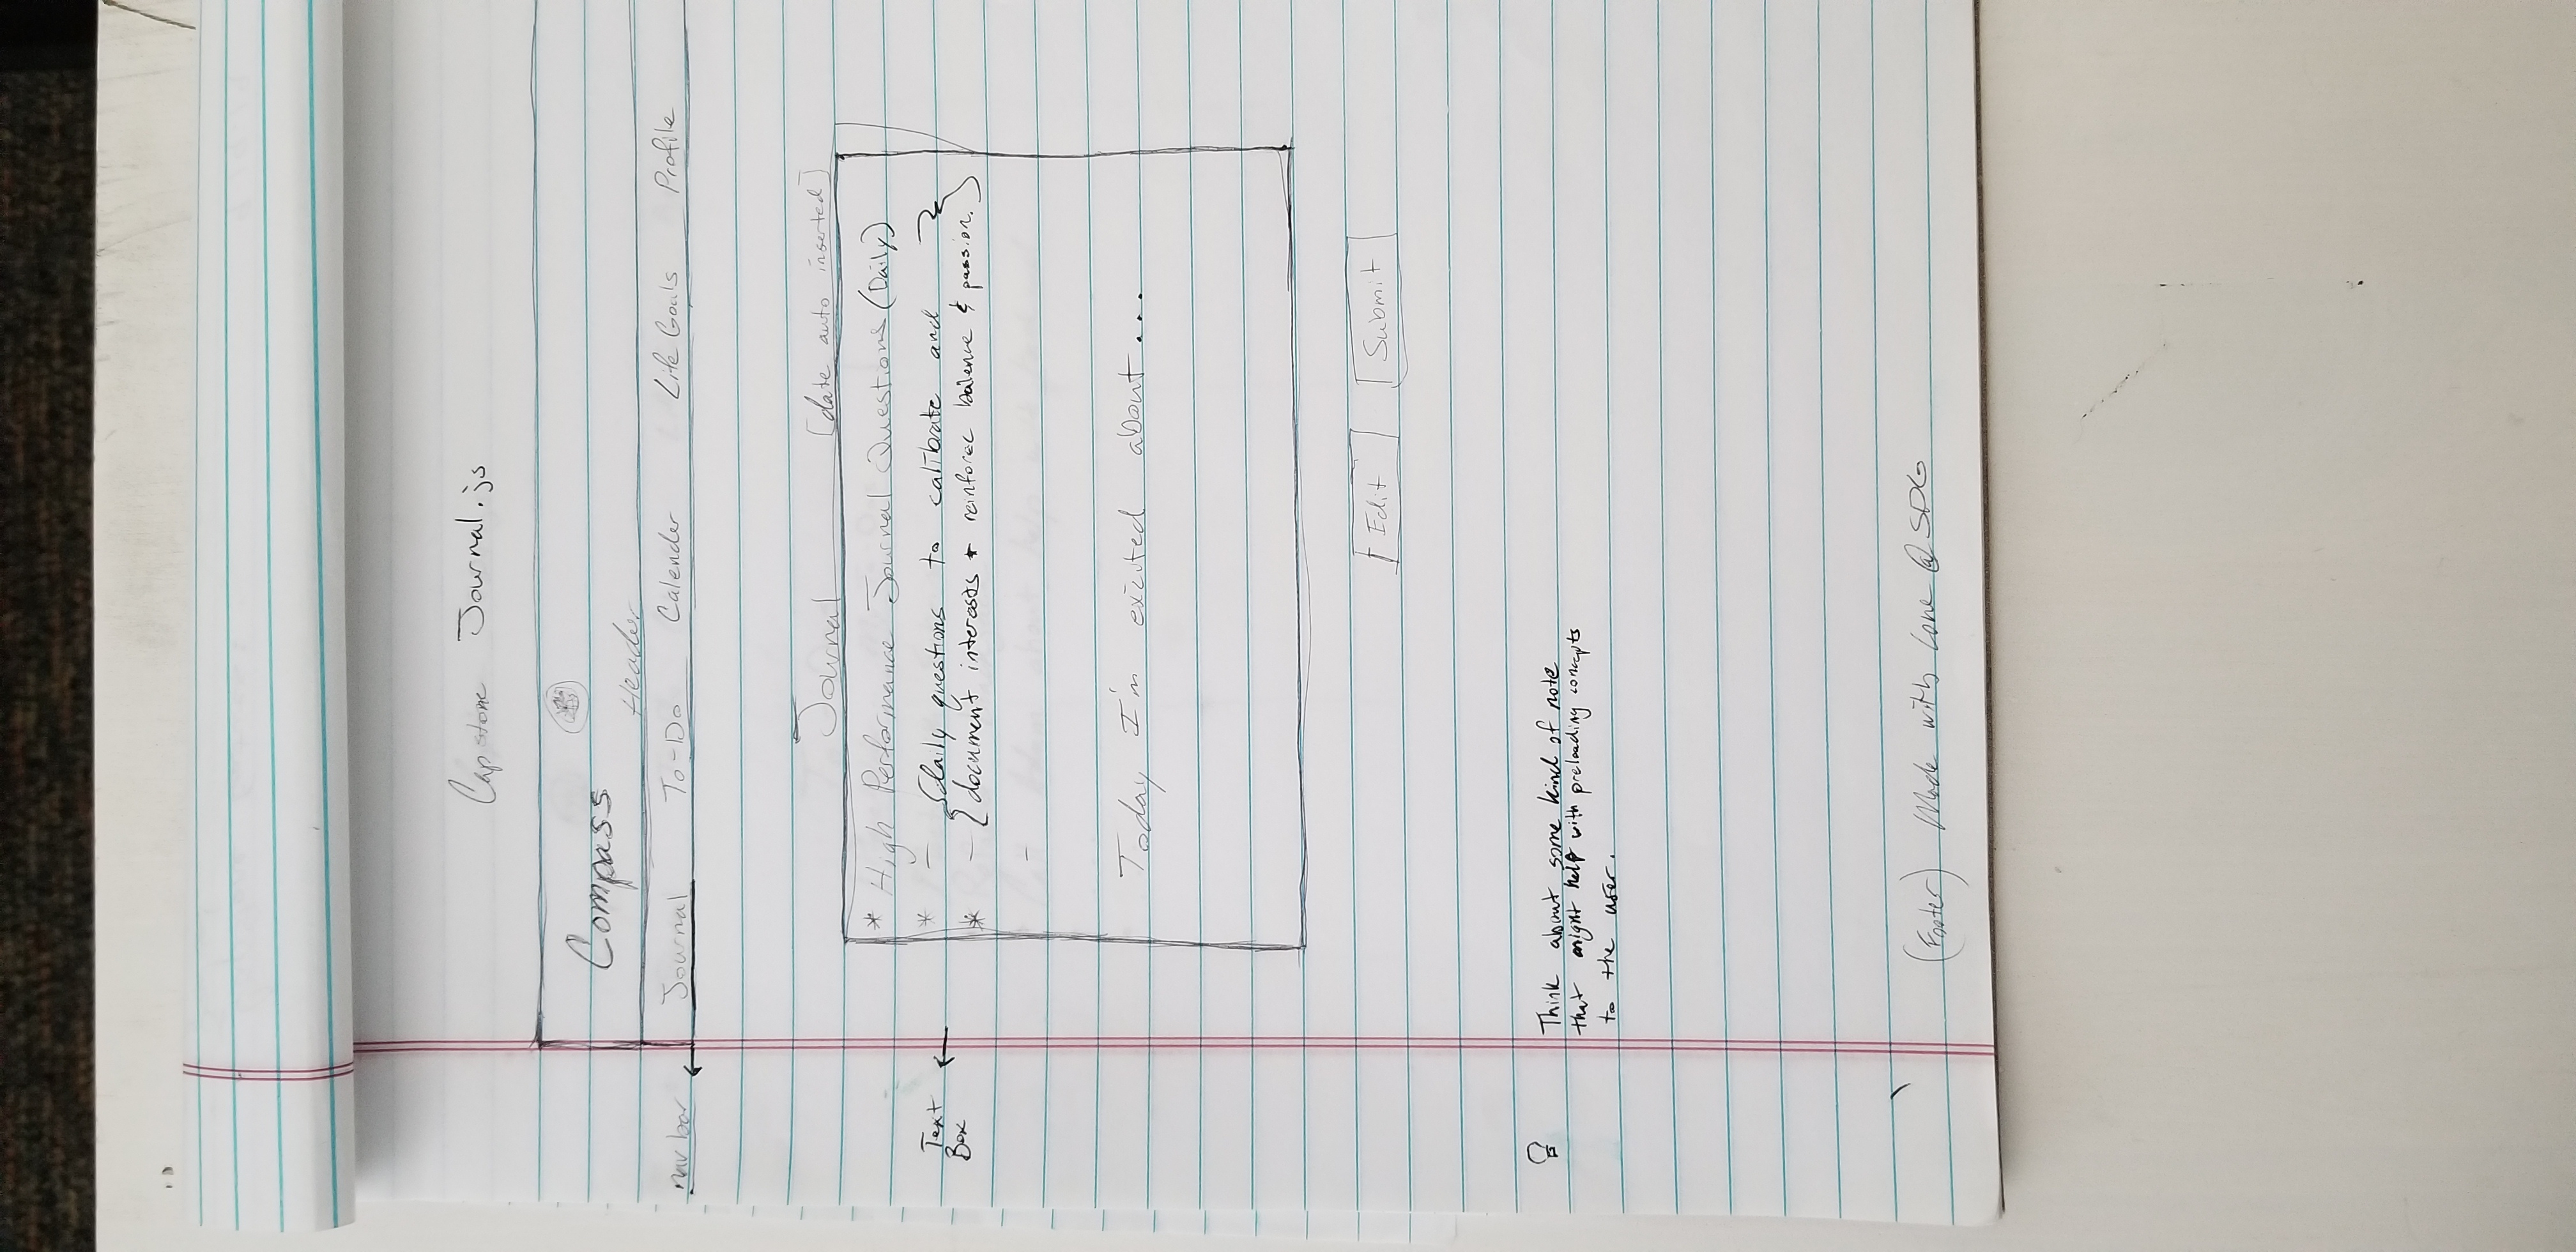 Capstone Journal.js
Compass
Header
nav bar Journal To-Do Calender Life Goals Profile
Journal [date auto inserted]
* High Performance Journal Questions (Daily)
* - {daily questions to calibrate and }
* - {document interests + reinforec balence & passion.}
-
Text
Box
Today I'm exicted about...
Edit Submit
Think about some kind of note
that might help with preloading concepts
to the user.
(Footer) Made with Love @ SDG